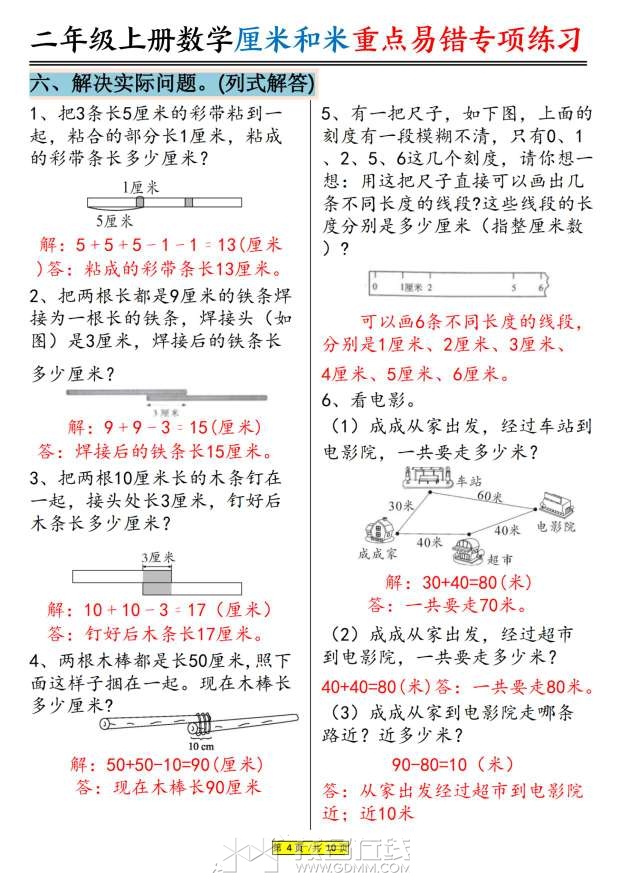 二年级上册数学厘米和米重点易错专项练习
六、解决实际问题。(列式解答)
1、把3条长5厘米的彩带粘到一
起，粘合的部分长1厘米，粘成
的彩带条长多少厘米?
1厘米
5厘米
解：5+5+5-1-1=13(厘米
)答：粘成的彩带条长13厘米。
2、把两根长都是9厘米的铁条焊
接为一根长的铁条，焊接头（如
图）是3厘米，焊接后的铁条长
多少厘米?
3厘米
解：9+9-3=15(厘米)
答：焊接后的铁条长15厘米。
3、把两根10厘米长的木条钉在
一起，接头处长3厘米，钉好后
木条长多少厘米?
3厘米
解：10+10-3=17（厘米）
答：钉好后木条长17厘米。
4、两根木棒都是长50厘米,照下
面这样子捆在一起。现在木棒长
多少厘米?
10 cm
解：50+50-10=90(厘米)
答：现在木棒长90厘米
5、有一把尺子，如下图，上面的
刻度有一段模糊不清，只有0、1
、2、5、6这几个刻度，请你想一
想：用这把尺子直接可以画出几
条不同长度的线段?这些线段的长
度分别是多少厘米（指整厘米数
）?
0 1厘米 2 5 6
可以画6条不同长度的线段，
分别是1厘米、2厘米、3厘米、
4厘米、5厘米、6厘米。
6、看电影。
（1）成成从家出发，经过车站到
电影院，一共要走多少米?
车站
30米
60米
电影院
成成家
40米
40米
超市
解：30+40=80(米)
答：一共要走70米。
（2）成成从家出发，经过超市
到电影院，一共要走多少米?
40+40=80(米)答：一共要走80米。
（3）成成从家到电影院走哪条
路近? 近多少米?
90-80=10（米）
答：从家出发经过超市到电影院
近；近10米
第 4 页 共 10 页
WWW.GDMM.COM